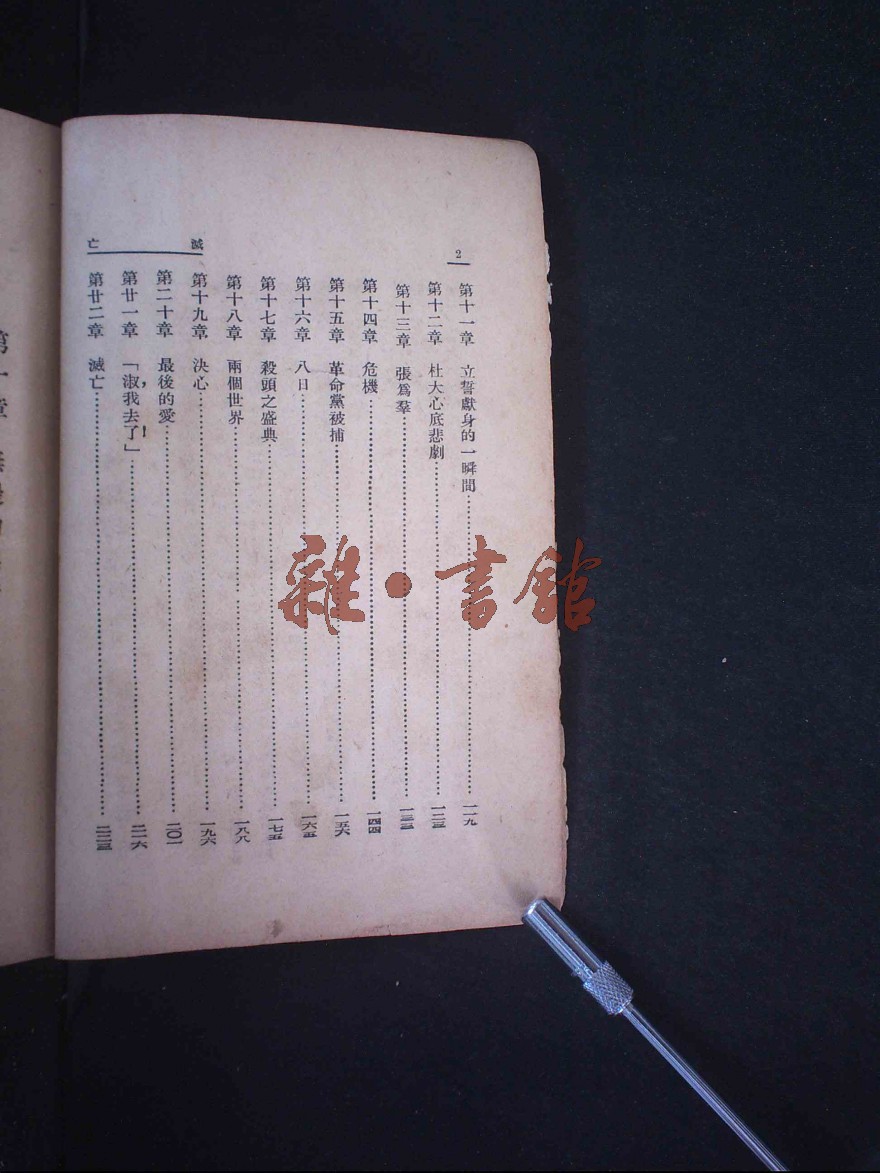 2
第十一章 立誓獻身的一瞬間……一一九
第十二章 杜大心底悲劇……一二三
第十三章 張爲羣……一三三
第十四章 危機……一四四
第十五章 革命黨被捕……一五六
第十六章 八日……一六五
第十七章 殺頭之盛典……一七五
第十八章 兩個世界……一八八
第十九章 決心……一九六
第二十章 最後的愛……二〇一
第廿一章 「淑,我去了!」……二一六
第廿二章 滅亡……二二三
滅亡
雜·書館